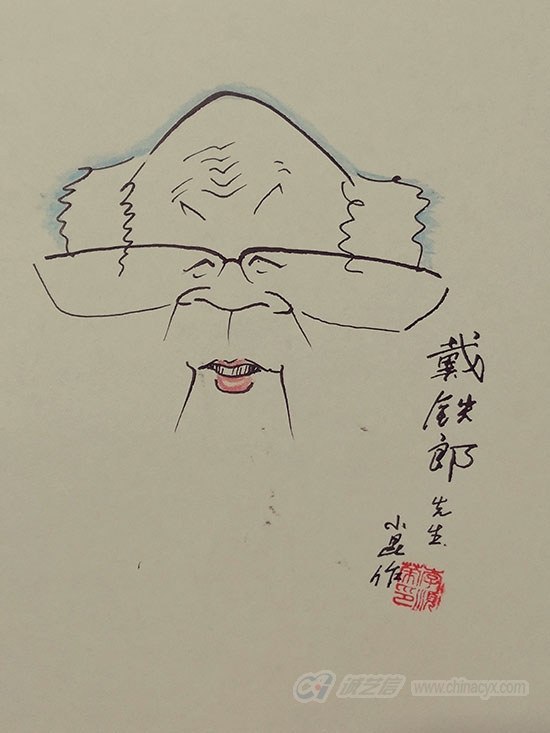 戴铁郎
先生
小昆作
诚艺信 www.chinacyx.com